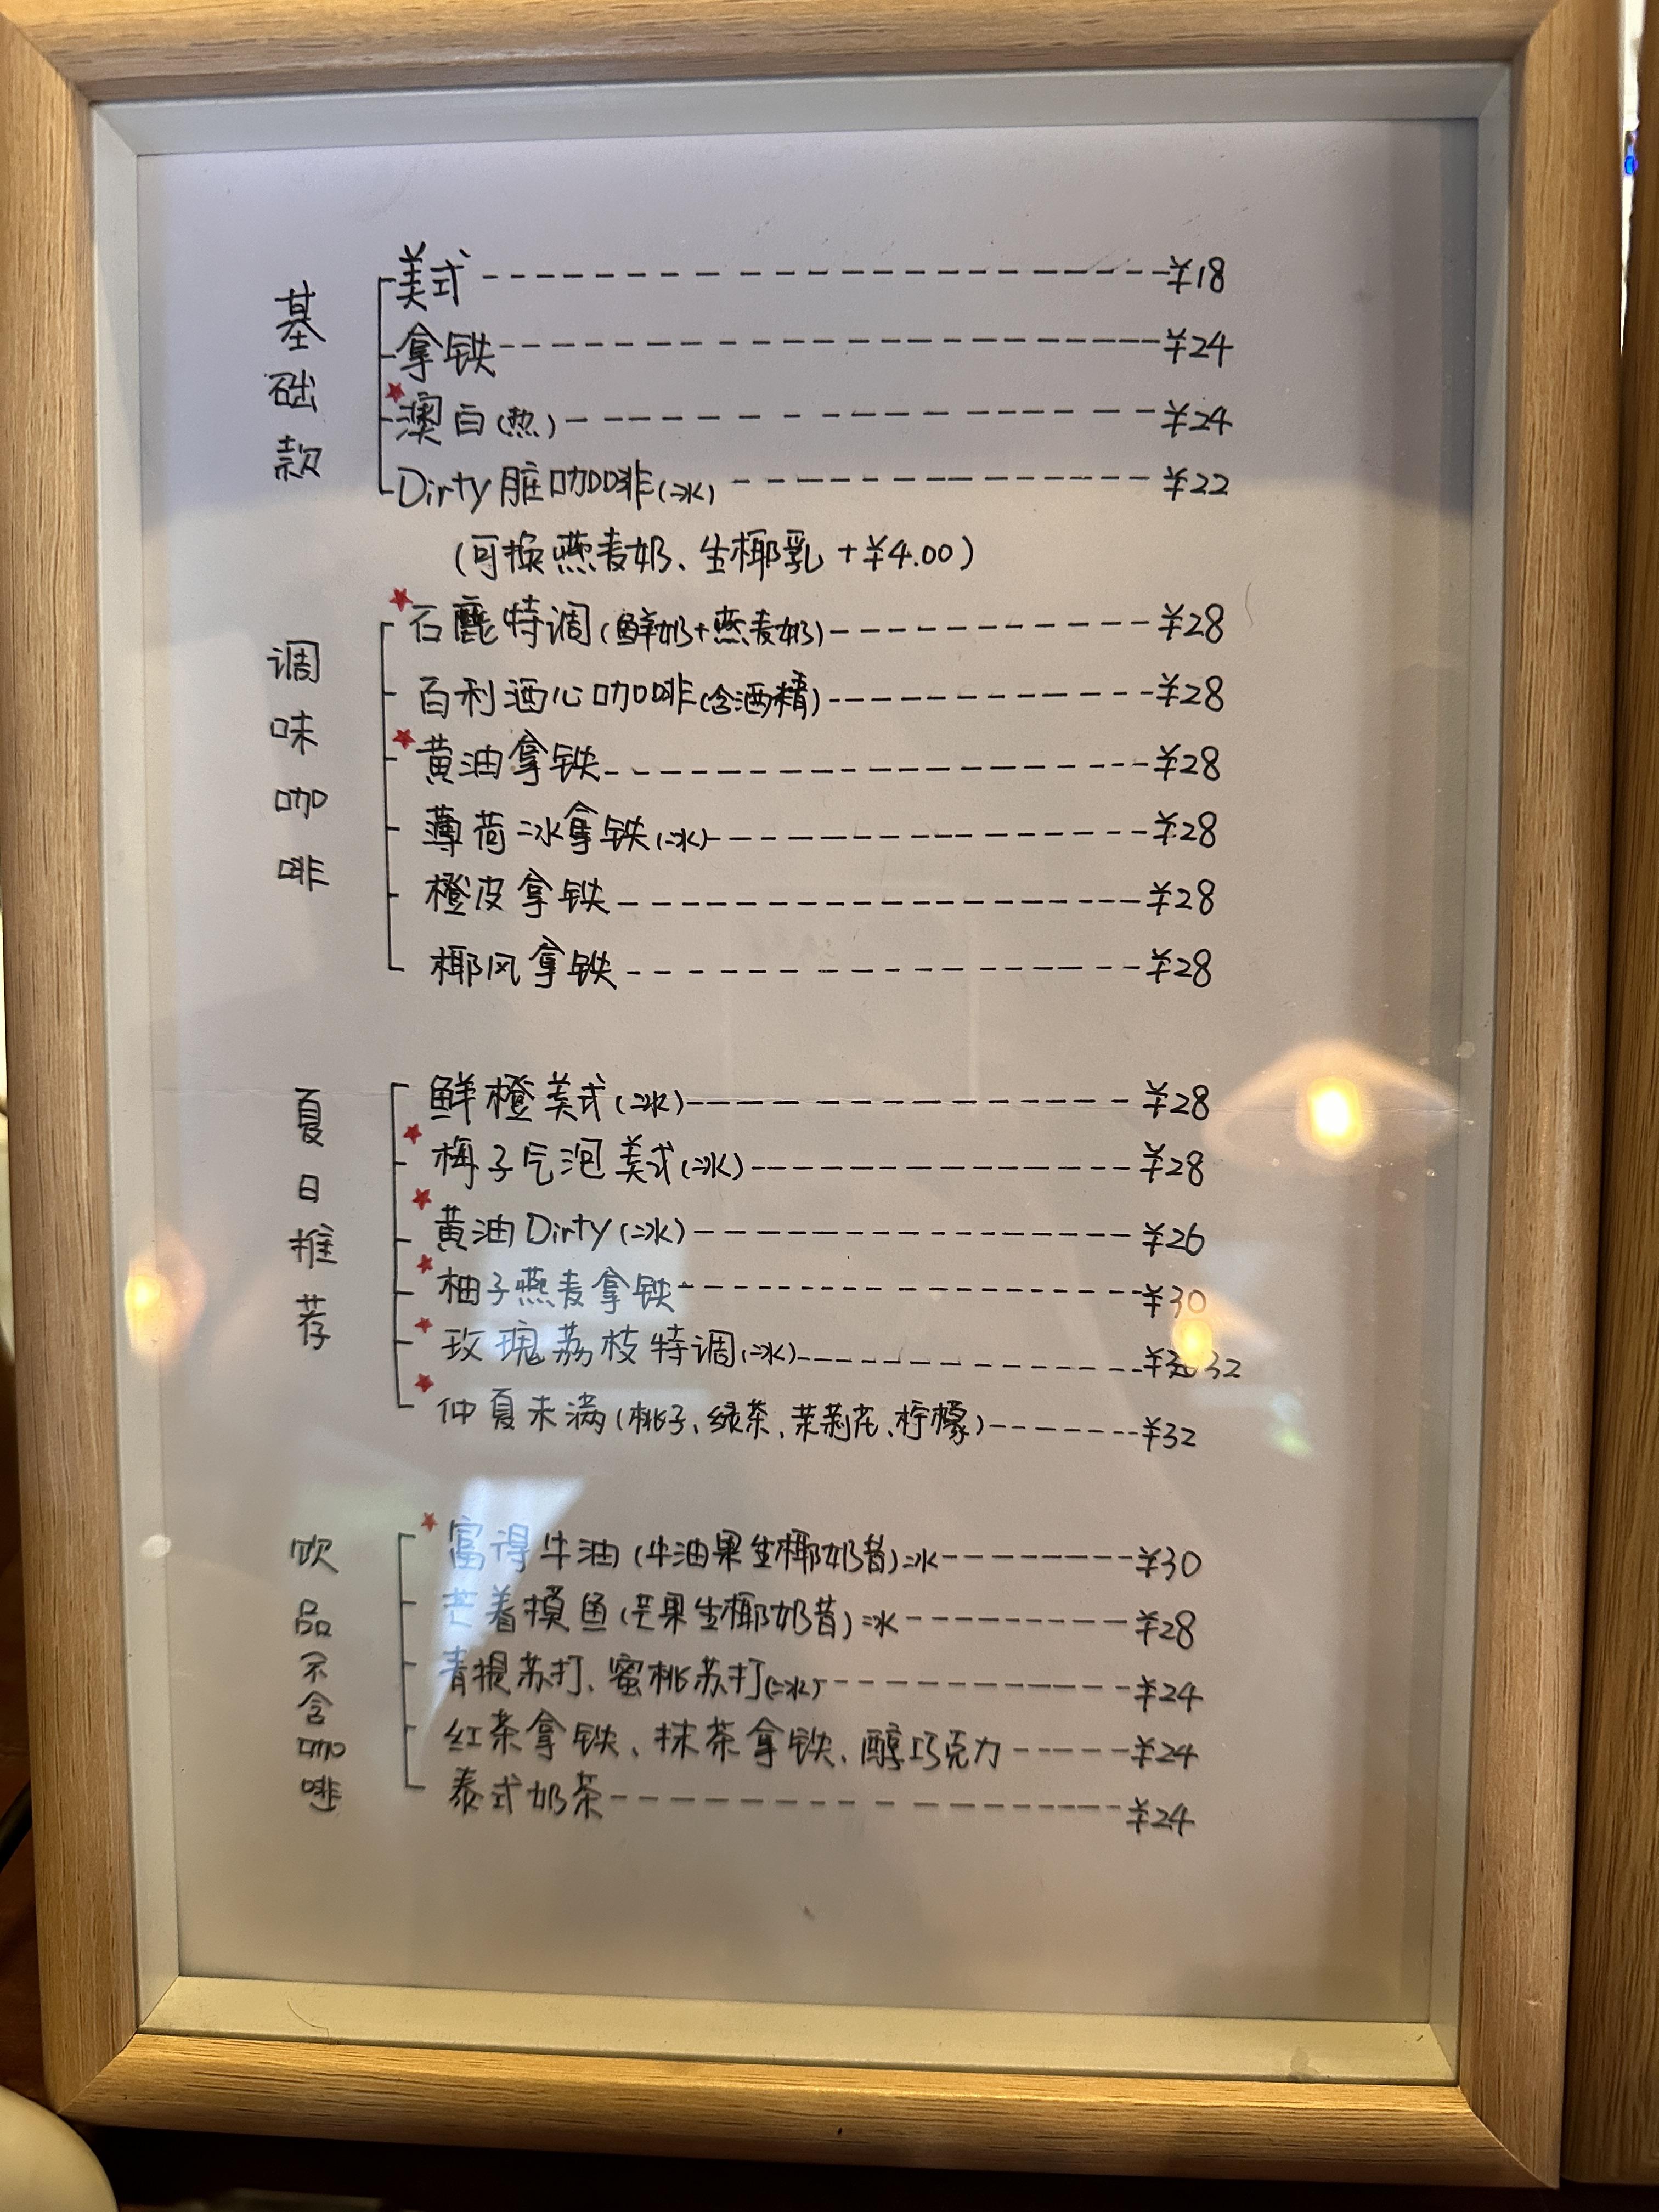 基础款
美式 ¥18
拿铁 ¥24
澳白(热) ¥24
Dirty脏咖啡(冰) ¥22
(可换燕麦奶、生椰乳+¥4.00)
调味咖啡
石鹿特调(鲜奶+燕麦奶) ¥28
百利酒心咖啡(含酒精) ¥28
黄油拿铁 ¥28
薄荷冰拿铁(冰) ¥28
橙皮拿铁 ¥28
椰风拿铁 ¥28
夏日推荐
鲜橙美式(冰) ¥28
梅子气泡美式(冰) ¥28
黄油Dirty(冰) ¥26
柚子燕麦拿铁 ¥30
玫瑰荔枝特调(冰) ¥32
仲夏未满(桃子、绿茶、茉莉花、柠檬) ¥32
饮品不含咖啡
富得牛油(牛油果生椰奶昔)冰 ¥30
芒着摸鱼(芒果生椰奶昔)冰 ¥28
青提苏打、蜜桃苏打(冰) ¥24
红茶拿铁、抹茶拿铁、醇巧克力 ¥24
泰式奶茶 ¥24